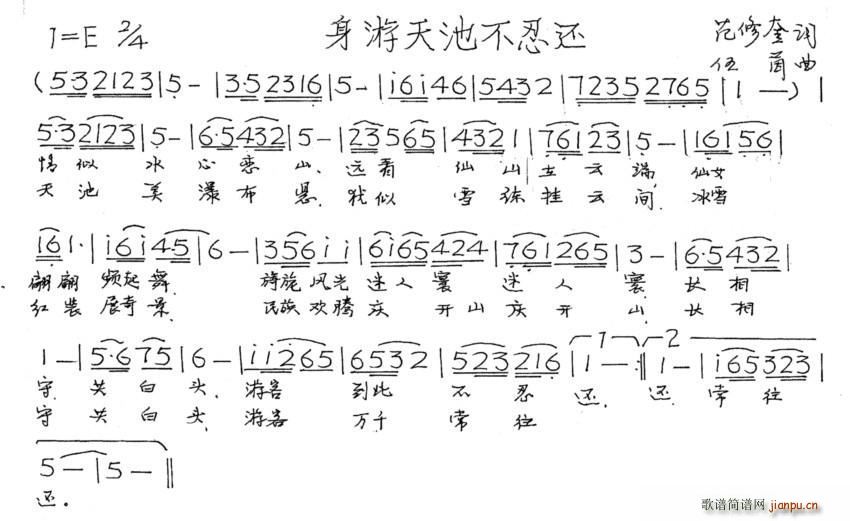 1=E 2/4 身游天池不忍还 范修奎 词
伍 曲
(5·3 2123 | 5 — | 3·5 2316 | 5 — | i6i 46 | 5432 | 7235 2765 | 1 — ) |
5·3 2123 | 5 — | 6·5 432 | 5 — | 235 65 | 432 1 | 761 23 | 5 — | 161 56 |
情似 水 心恋 山、 远看 仙山 立云 端, 仙女
天池 美 瀑布 悬, 犹似 雪练 挂云 间, 冰雪
161· | i6i 4·5 | 6 — | 356 i i | 6i65 424 | 761 265 | 3 — | 6·5 432 |
翩翩 频起 舞, 旖旎风光 迷人寰 迷人 寰 长相
红装 展奇 景, 民族欢腾 庆开山 庆开 山 长相
1 — | 5·6 75 | 6 — | i i 265 | 6532 | 523 216 | 1 — :‖ 1 — | i65 323 |
守, 共白 头, 游客 到此 不忍 还. 还 常往
守 共白 头, 游客 万千 常往
5 — | 5 — ‖
还.
歌谱简谱网 jianpu.cn